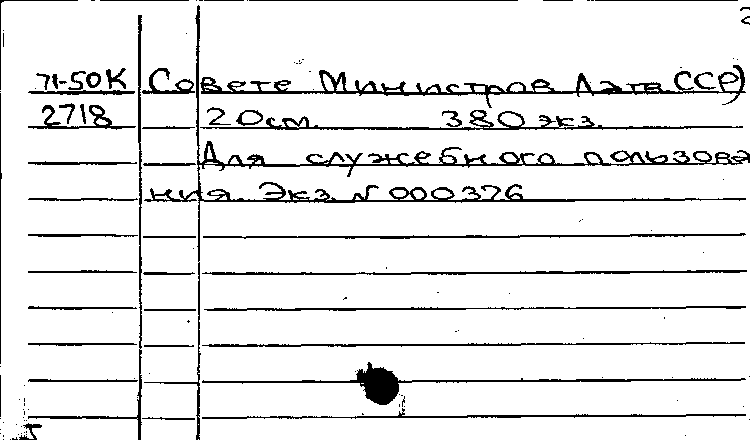 2
71-50К Совете Министров Латв.ССР)
2718 20см. 380 экз.
Для служебного пользова
ния. Экз. N 000376